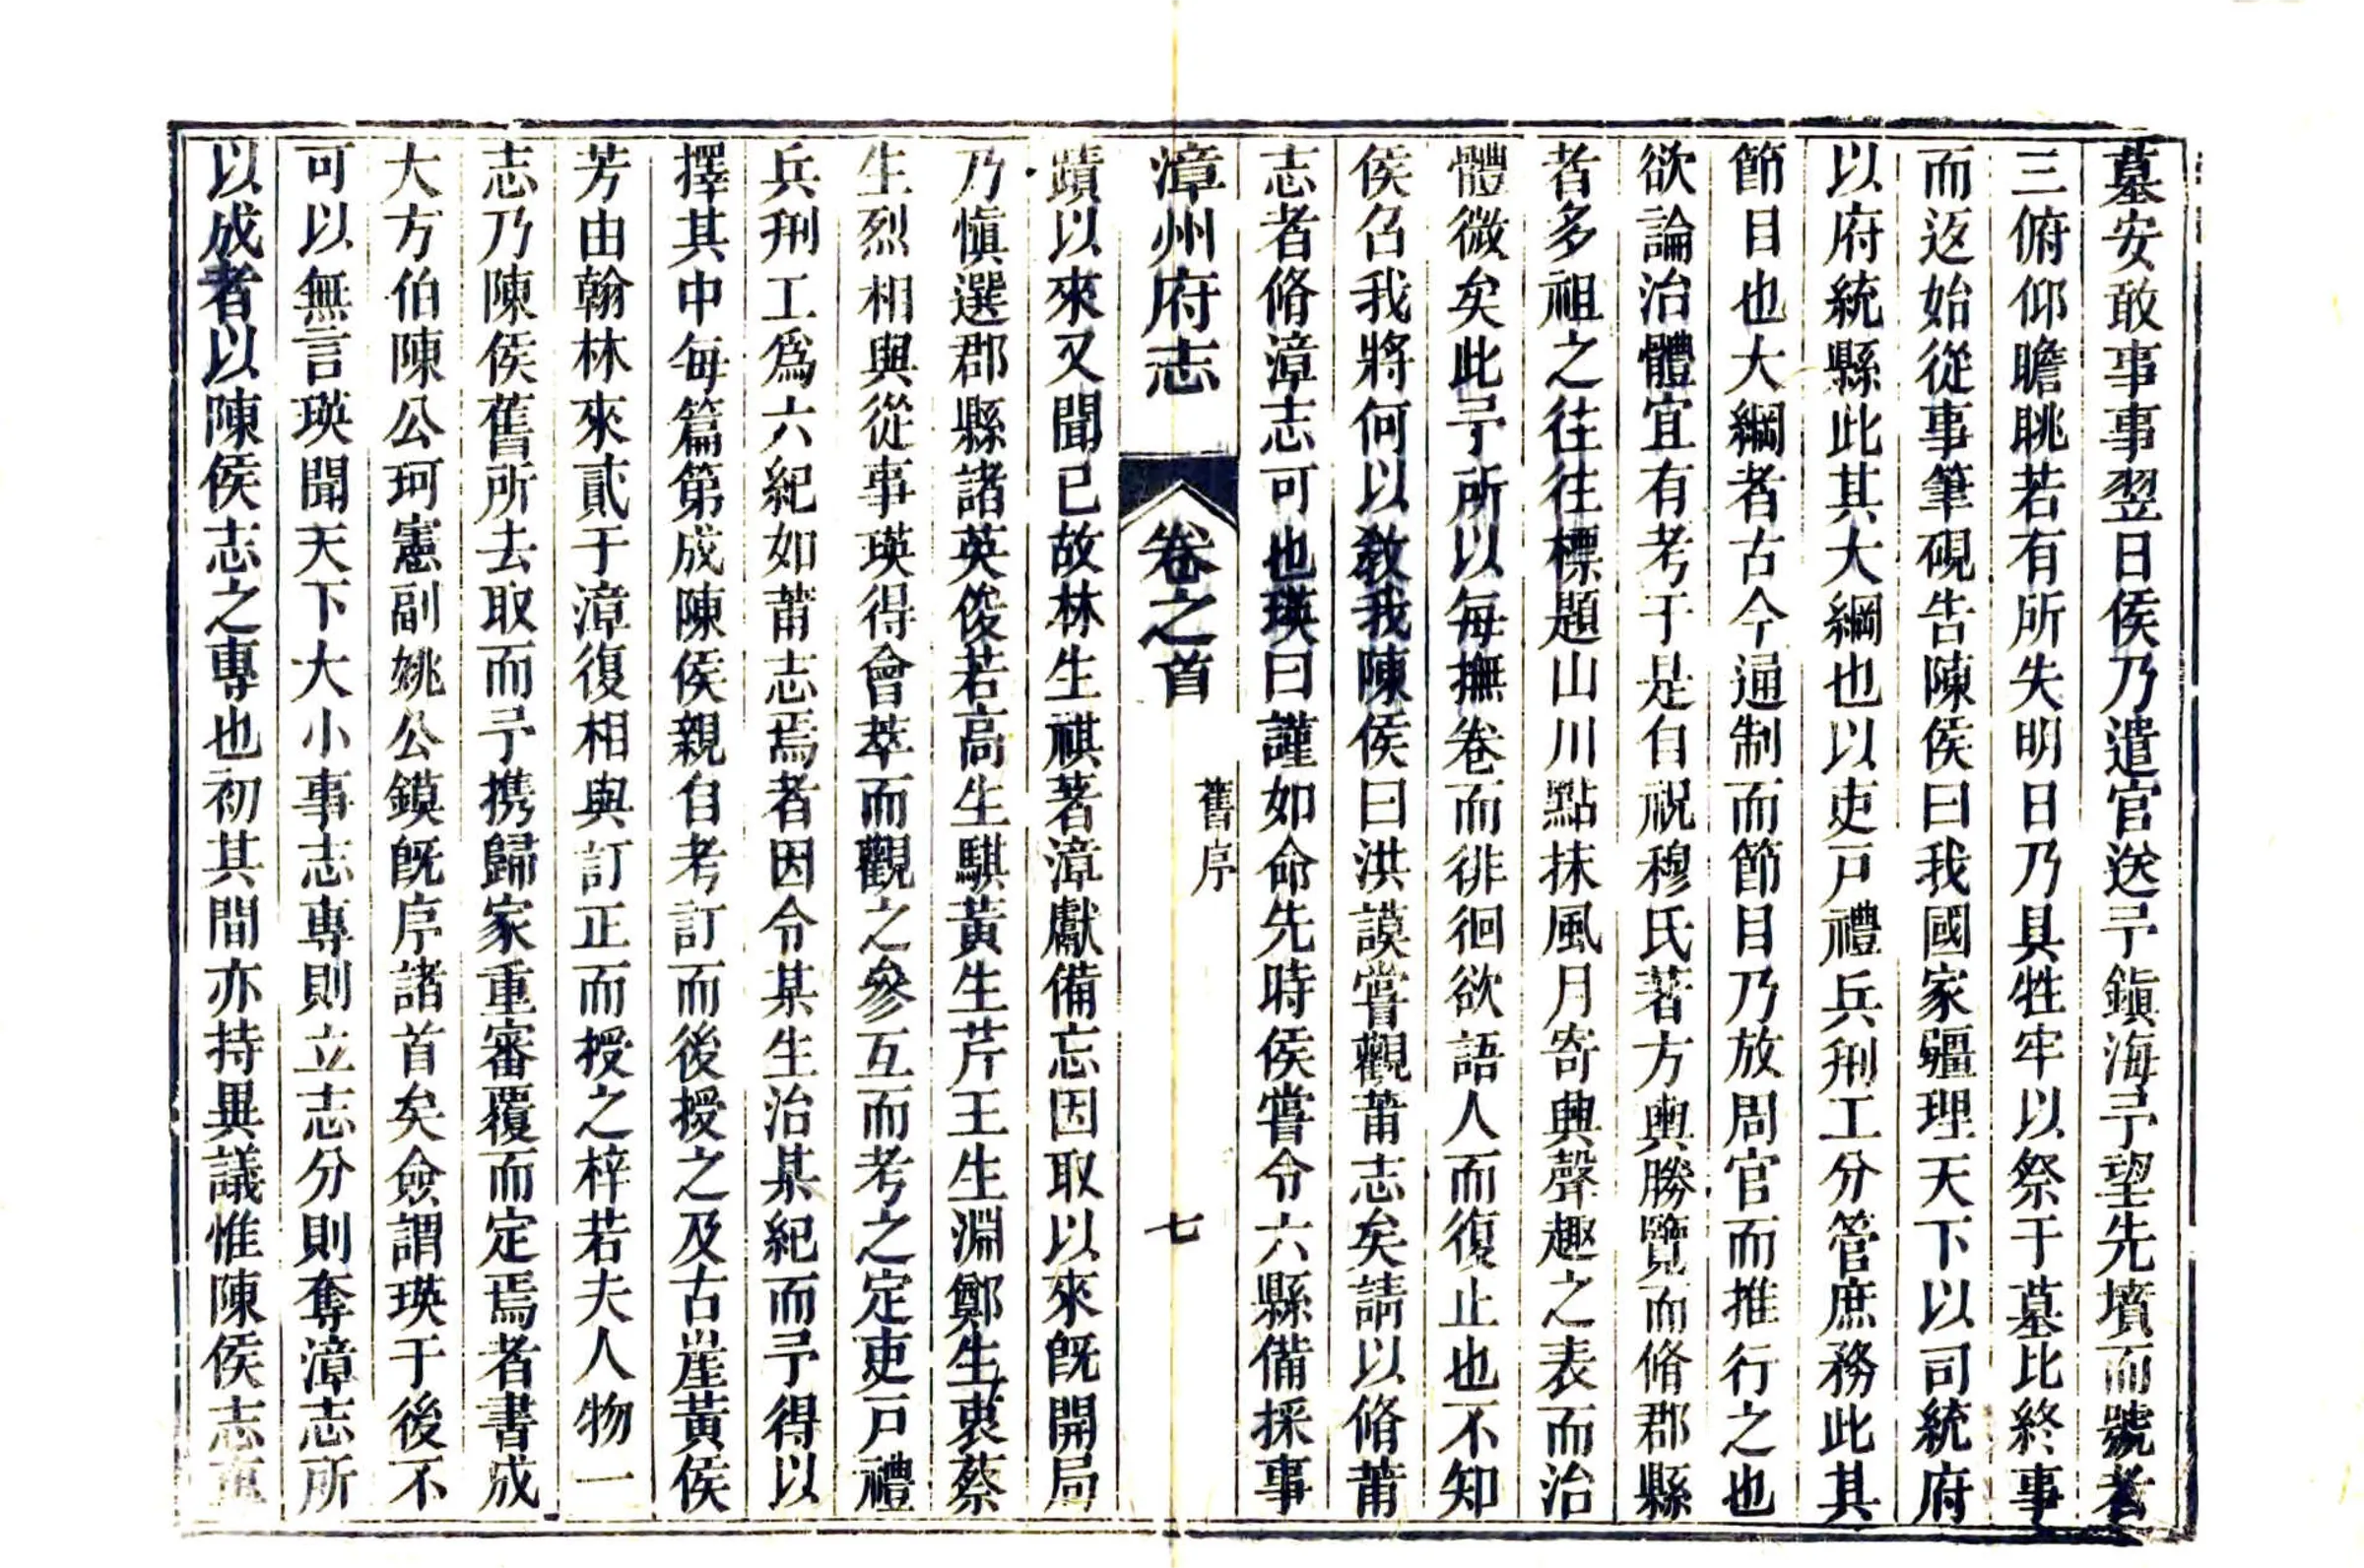 墓安敢事事翌日侯乃遣官送予鎮海予望先墳而號者
三俯仰瞻眺若有所失明日乃具牲牢以祭于墓比終事
而返始從事筆硯告陳侯曰我國家疆理天下以司統府
以府統縣此其大綱也以吏戸禮兵刑工分管庶務此其
節目也大綱者古今通制而節目乃放周官而推行之也
欲論治體宜有考于是自祝穆氏著方輿勝覽而脩郡縣
者多祖之往往標題山川點抹風月寄典聲趣之表而治
體微矣此予所以每撫卷而徘徊欲語人而復止也不知
侯召我將何以教我陳侯曰洪謨嘗觀莆志矣請以脩莆
志者脩漳志可也瑛曰謹如命先時侯嘗令六縣備採事
漳州府志 卷之首 舊序 七
蹟以來又聞已故林生祺著漳獻備忘因取以來旣開局
乃愼選郡縣諸英俊若高生騏黃生芹王生淵鄭生衷蔡
生烈相與從事瑛得會萃而觀之參互而考之定吏戸禮
兵刑工爲六紀如莆志焉者因令某生治某紀而予得以
擇其中每篇第成陳侯親自考訂而後授之及古崖黃侯
芳由翰林來貳于漳復相與訂正而授之梓若夫人物一
志乃陳侯舊所去取而予携歸家重審覆而定焉者書成
大方伯陳公珂憲副姚公鏌旣序諸首矣僉謂瑛于後不
可以無言瑛聞天下大小事志專則立志分則奪漳志所
以成者以陳侯志之專也初其間亦持異議惟陳侯志